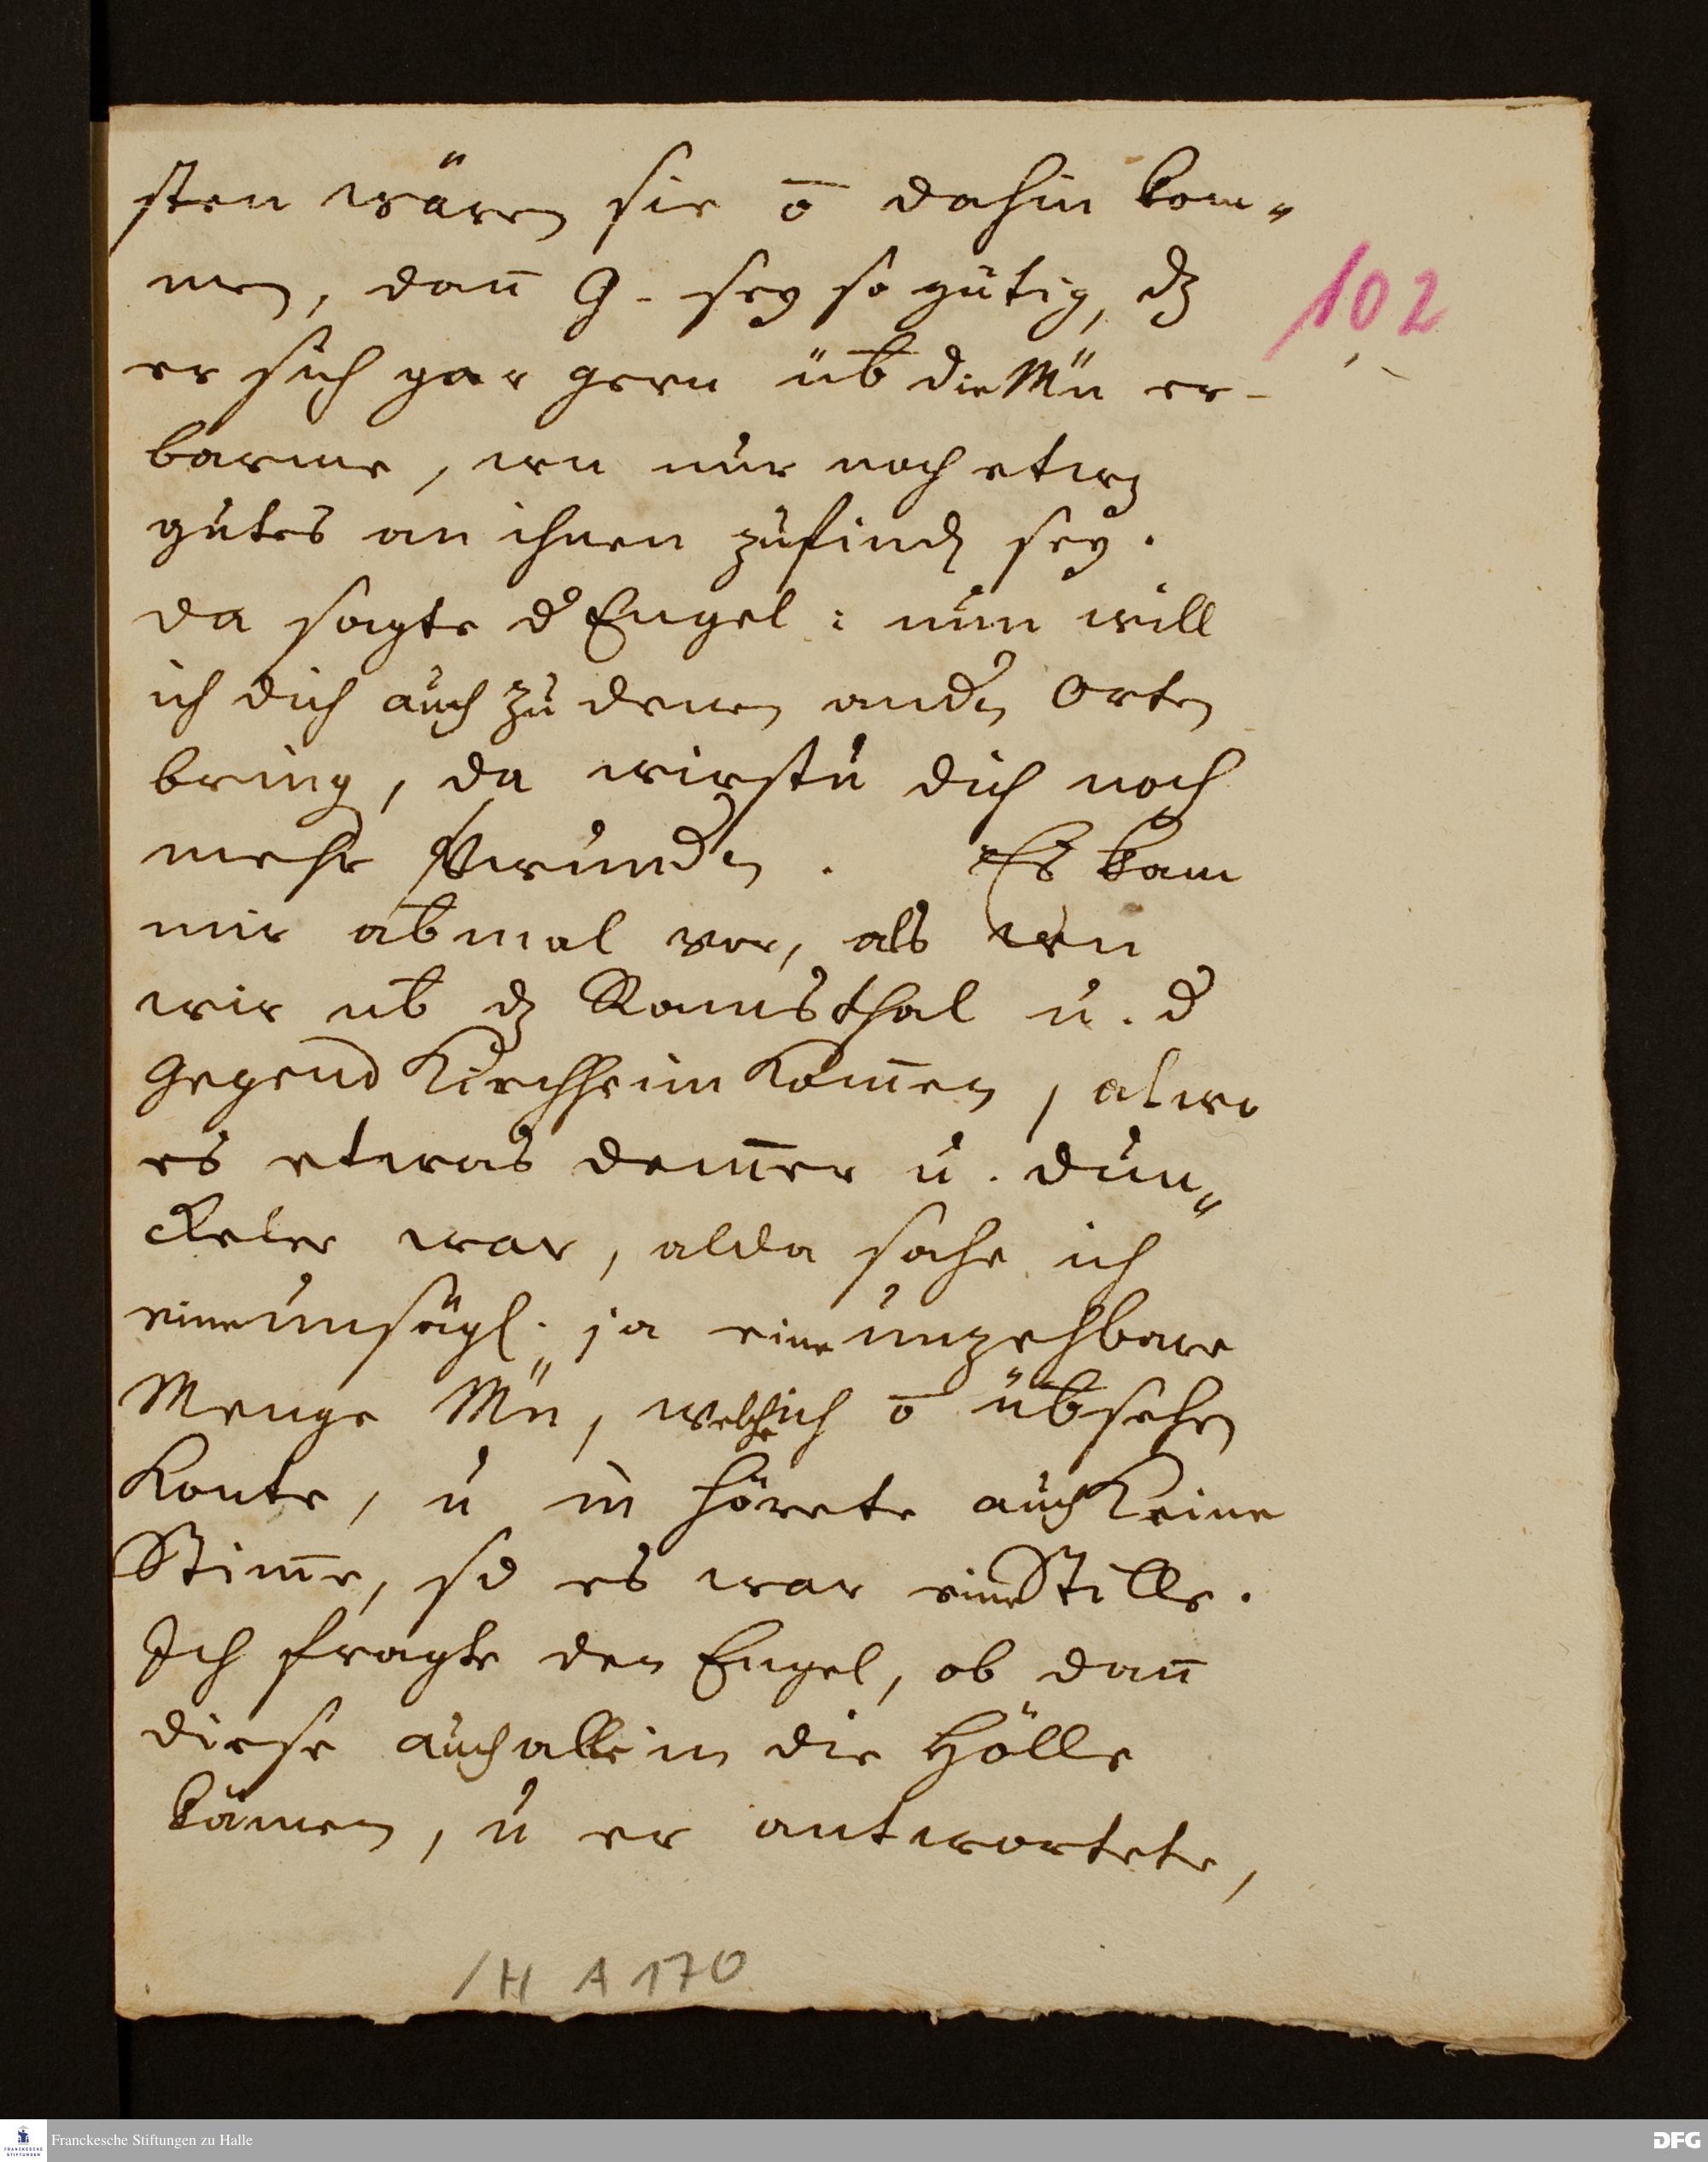 sten wären sie o̅ dahin kom„
men, dan̅ G. sey so gütig, dz
102
er sich gar gern üb̅ die Mn̈ er-
barme, wn nur noch etwz
gutes an ihnen zufindꝭ sey.
da sagte d' Engel: nun will
ich dich auch zu denen andn Orten
bring, da wirstu dich noch
mehr Vrwundn. Es kam
mir ab̅mal vor, als wn
wir üb̅ dz Ramsthal u. d'
gegend Kirchheim kom̅en, alwo
es etwas dem̅er u. dun„
ckeler war, alda sahe ich
eine unsägl. ja eine unzehbare
Menge Mn̈, welche ich o̅ üb̅sehen
konte, u in hörete auch keine
Stim̅e, sd es war eine Stille.
Ich fragte den Engel, ob dan̅
diese auch alle in die Hölle
kämen, u er antwortete,
/H A 170
Franckesche Stiftungen zu Halle
DFG